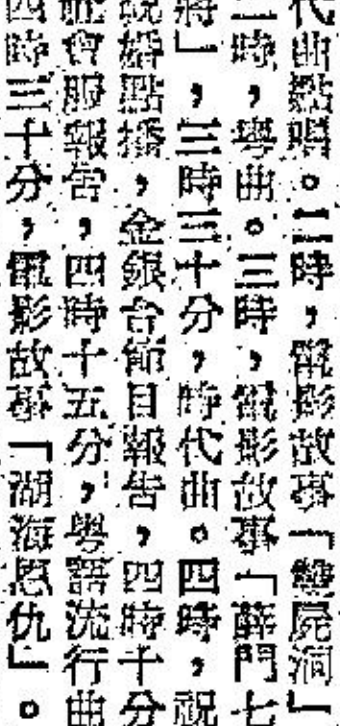 代曲點唱。二時，電影故事「雙屍洞」
二時，粵曲。三時，電影故事「薛門七
將」，三時三十分，時代曲。四時，祝
說播點播，金銀台節目報告，四時十分
社會服報告，四時十五分，粵語流行曲
四時三十分，電影故事「湖海恩仇」。